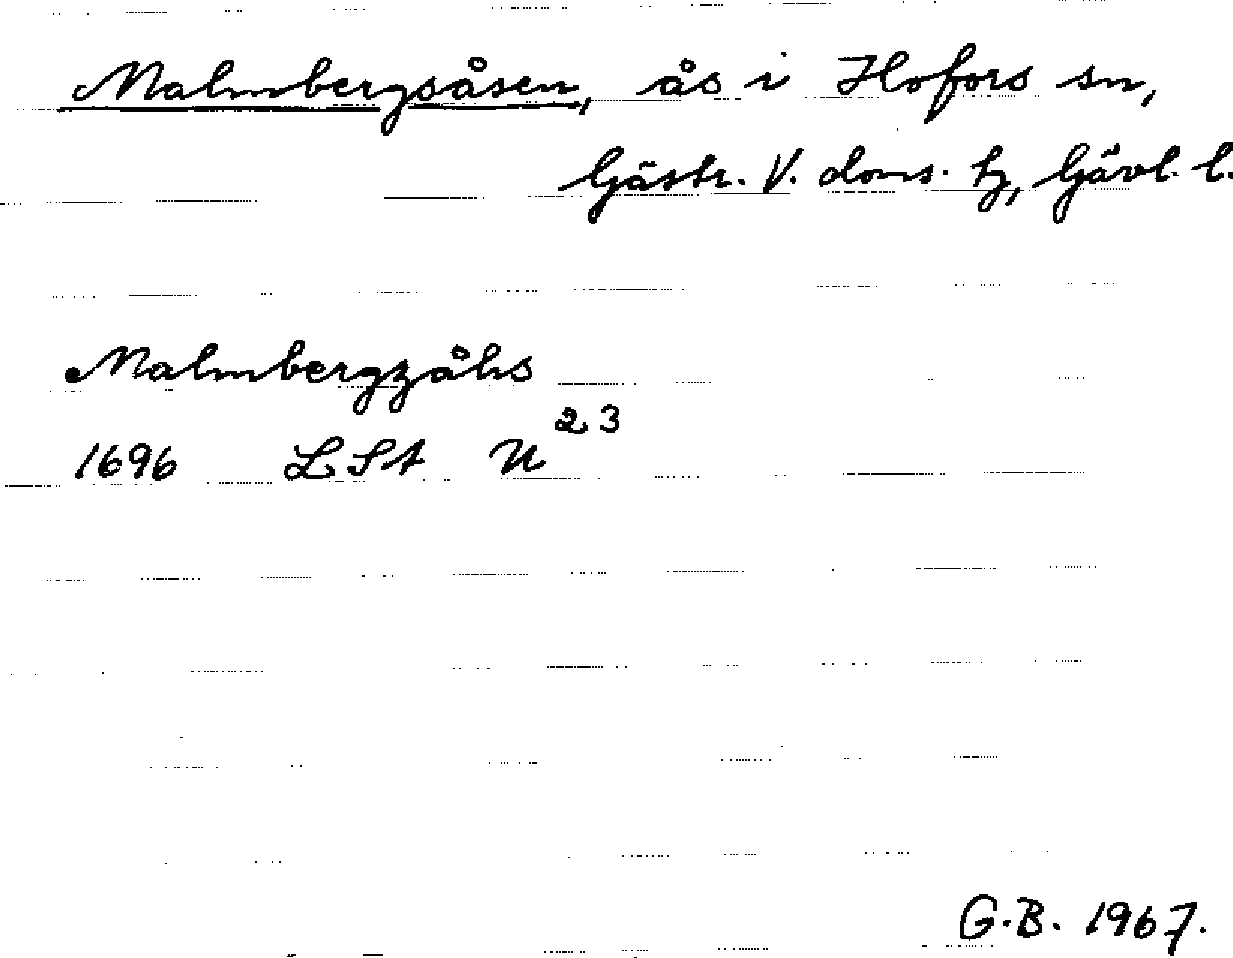 Malmbergsåsen, ås i Hofors sn,
Gästr. V. doms. hg, Gävl. l.
Malmbergzåhs
1696 LSt U 23
G.B. 1967.